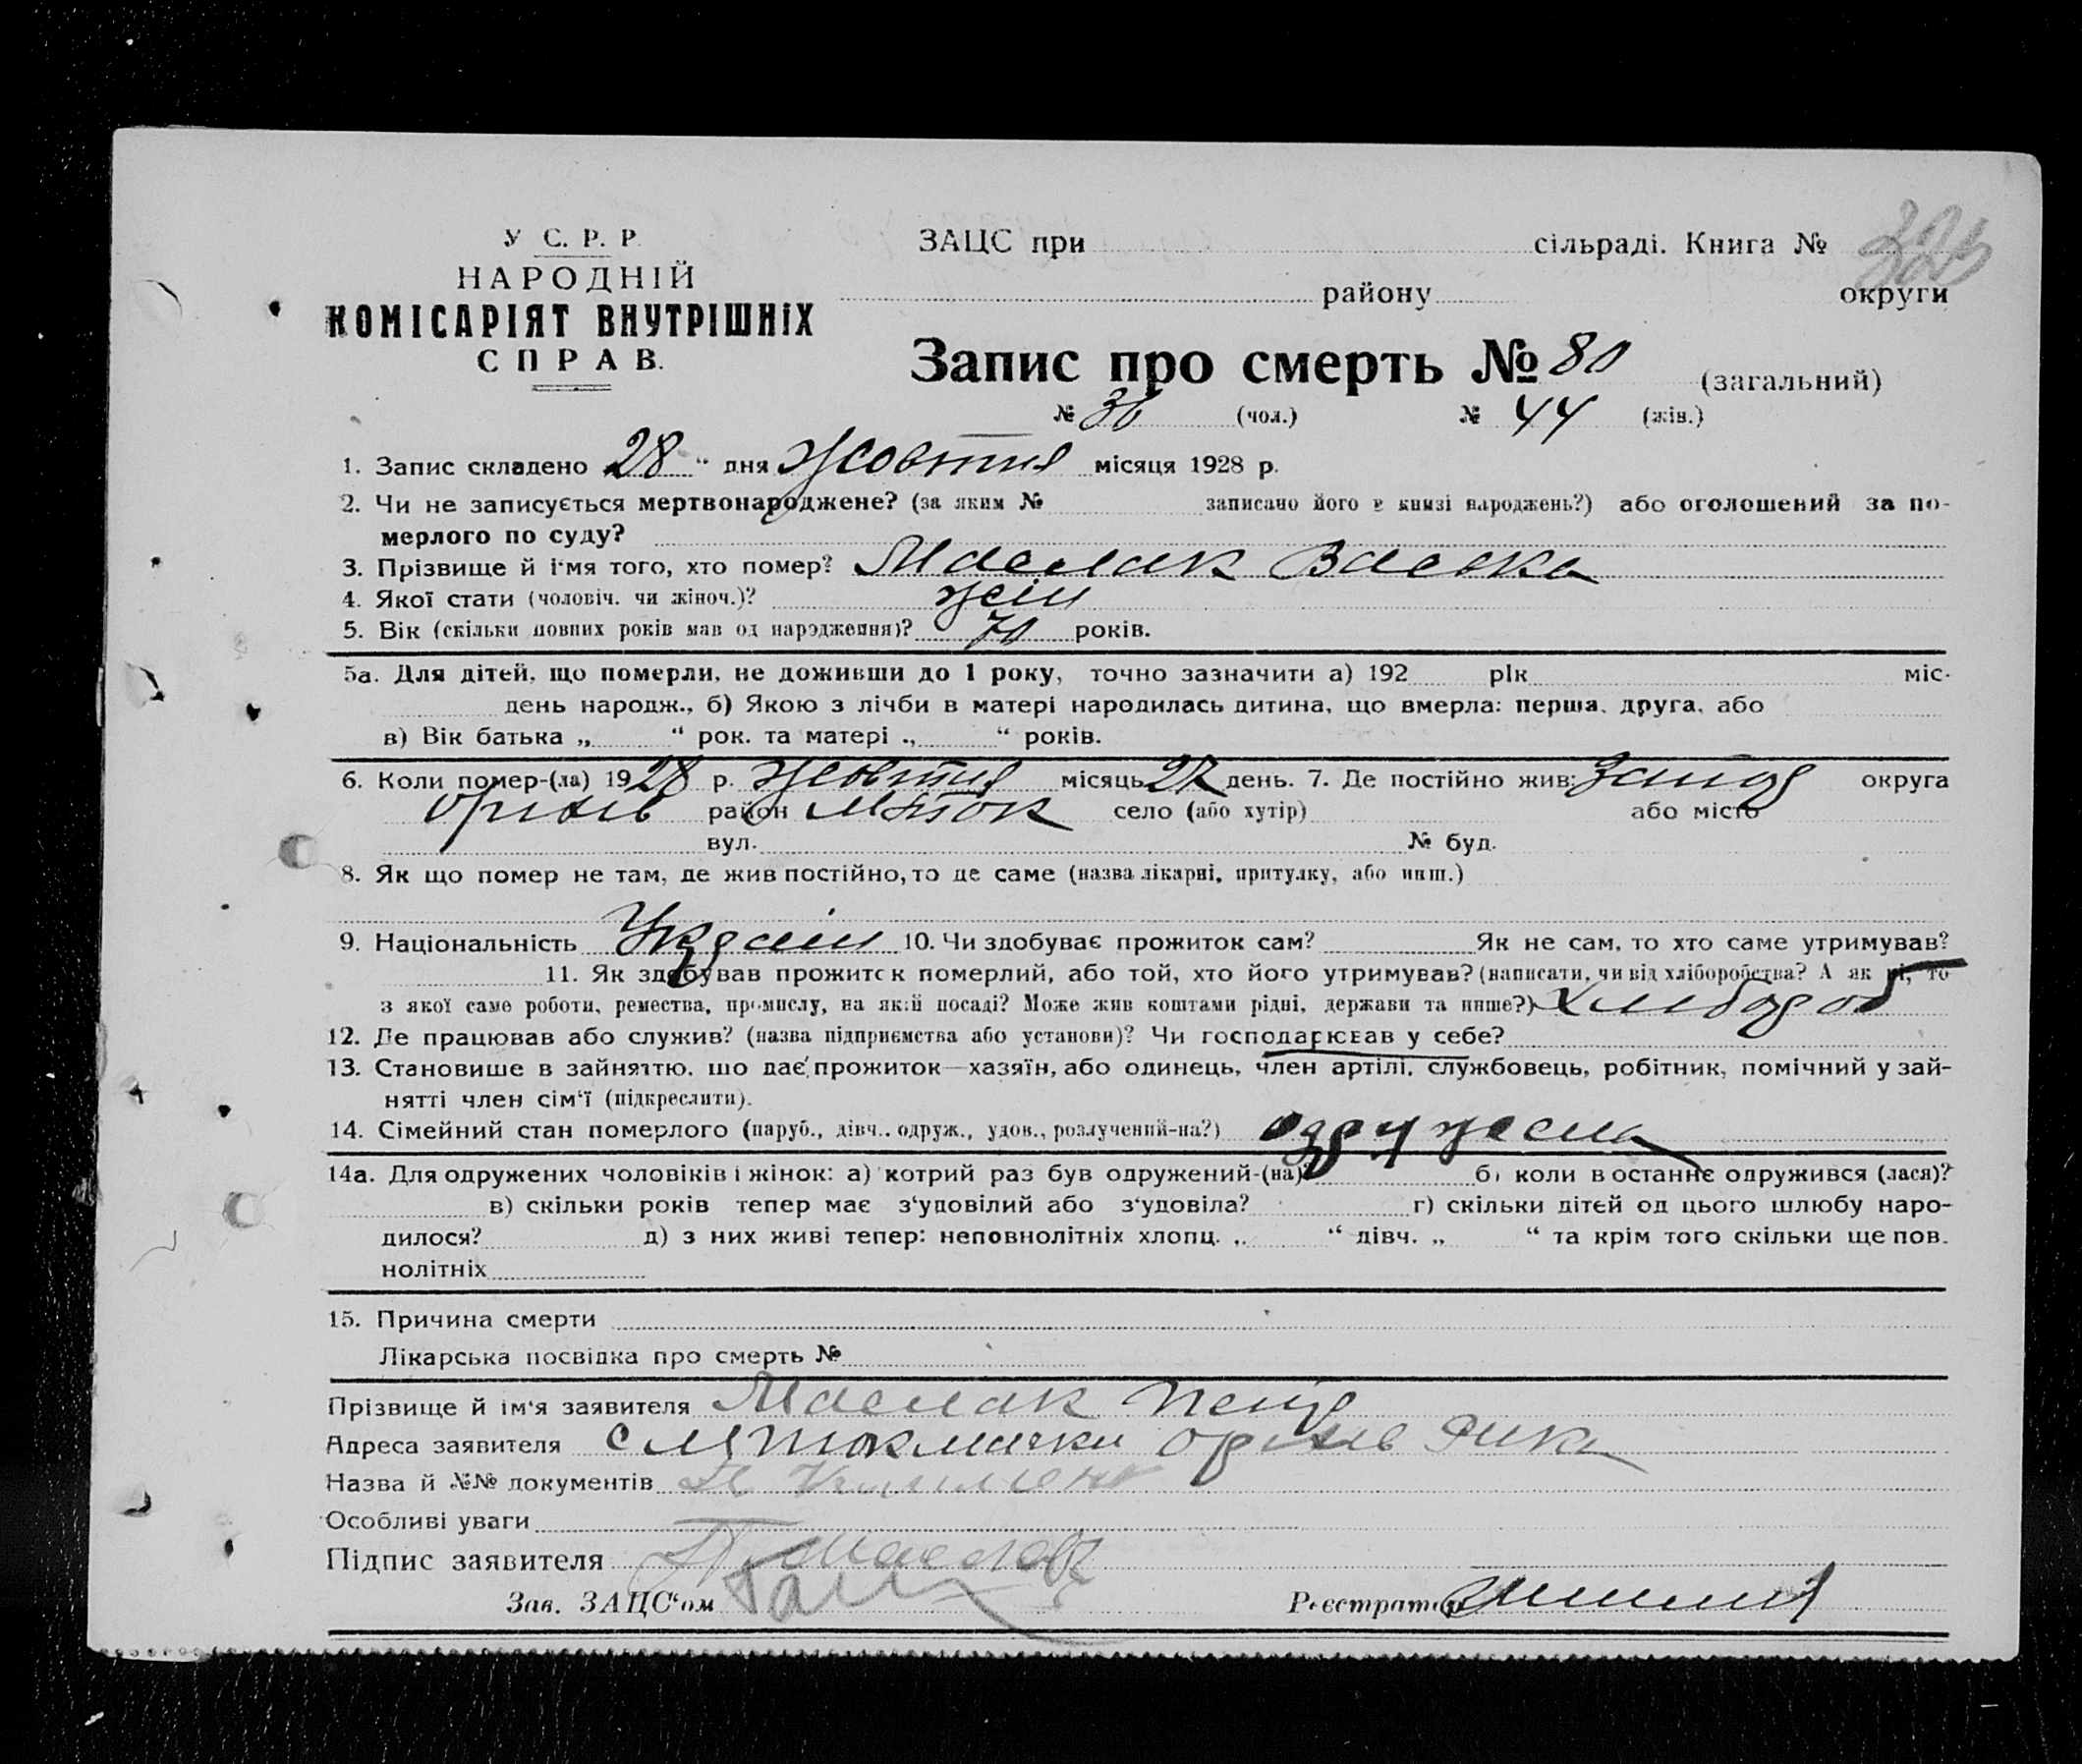 У С. Р. Р.
НАРОДНІЙ
КОМІСАРІЯТ ВНУТРІШНІХ
СПРАВ.
ЗАЦС при сільраді. Книга №
району округи
Запис про смерть № 80 (загальний)
№ 36 (чол.) № 44 (жін.)
1. Запис складено 28 “ дня жовтня місяця 1928 р.
2. Чи не записується мертвонароджене? (за яким № записано його в книзі народжень?) або оголошений за по-
мерлого по суду?
3. Прізвище й і'мя того, хто помер? Маслак Васька
4. Якої стати (чоловіч. чи жіноч.)? жін
5. Вік (скільки повних років мав од народження)? 70 років.
5а. Для дітей, що померли, не доживши до 1 року, точно зазначити а) 192 рік міс.
день народж., б) Якою з лічби в матері народилась дитина, що вмерла: перша, друга, або
в) Вік батька „ “ рок. та матері „ “ років.
6. Коли помер-(ла) 1928 р. жовтня місяць 27 день. 7. Де постійно жив: Запор округа
Оріхів район Мтокм село (або хутір) або місто
вул. № буд.
8. Як що помер не там, де жив постійно, то де саме (назва лікарні, притулку, або инш.)
9. Національність Україн 10. Чи здобуває прожиток сам? Як не сам, то хто саме утримував?
11. Як здобував прожиток померлий, або той, хто його утримував? (написати, чи від хліборобства? А як ні, то
з якої саме роботи, ремества, промислу, на якій посаді? Може жив коштами рідні, держави та инше?) хлібороб
12. Де працював або служив? (назва підприємства або установи)? Чи господарював у себе?
13. Становище в зайняттю, що дає прожиток—хазяїн, або одинець, член артілі, службовець, робітник, помічний у зай-
нятті член сім‘ї (підкреслити).
14. Сімейний стан померлого (паруб., дівч., одруж., удов., розлучений-на?) одружена
14а. Для одружених чоловіків і жінок: а) котрий раз був одружений-(на) б) коли в останнє одружився (лася)?
в) скільки років тепер має з‘удовілий або з‘удовіла? г) скільки дітей од цього шлюбу наро-
дилося? д) з них живі тепер: неповнолітніх хлопц. „ “ дівч. „ “ та крім того скільки ще пов.
нолітніх
15. Причина смерти
Лікарська посвідка про смерть №
Прізвище й ім‘я заявителя Маслак
Адреса заявителя с Мтокмачки Оріхів
Назва й №№ документів
Особливі уваги
Підпис заявителя
Зав. ЗАЦС‘ом Реєстратор